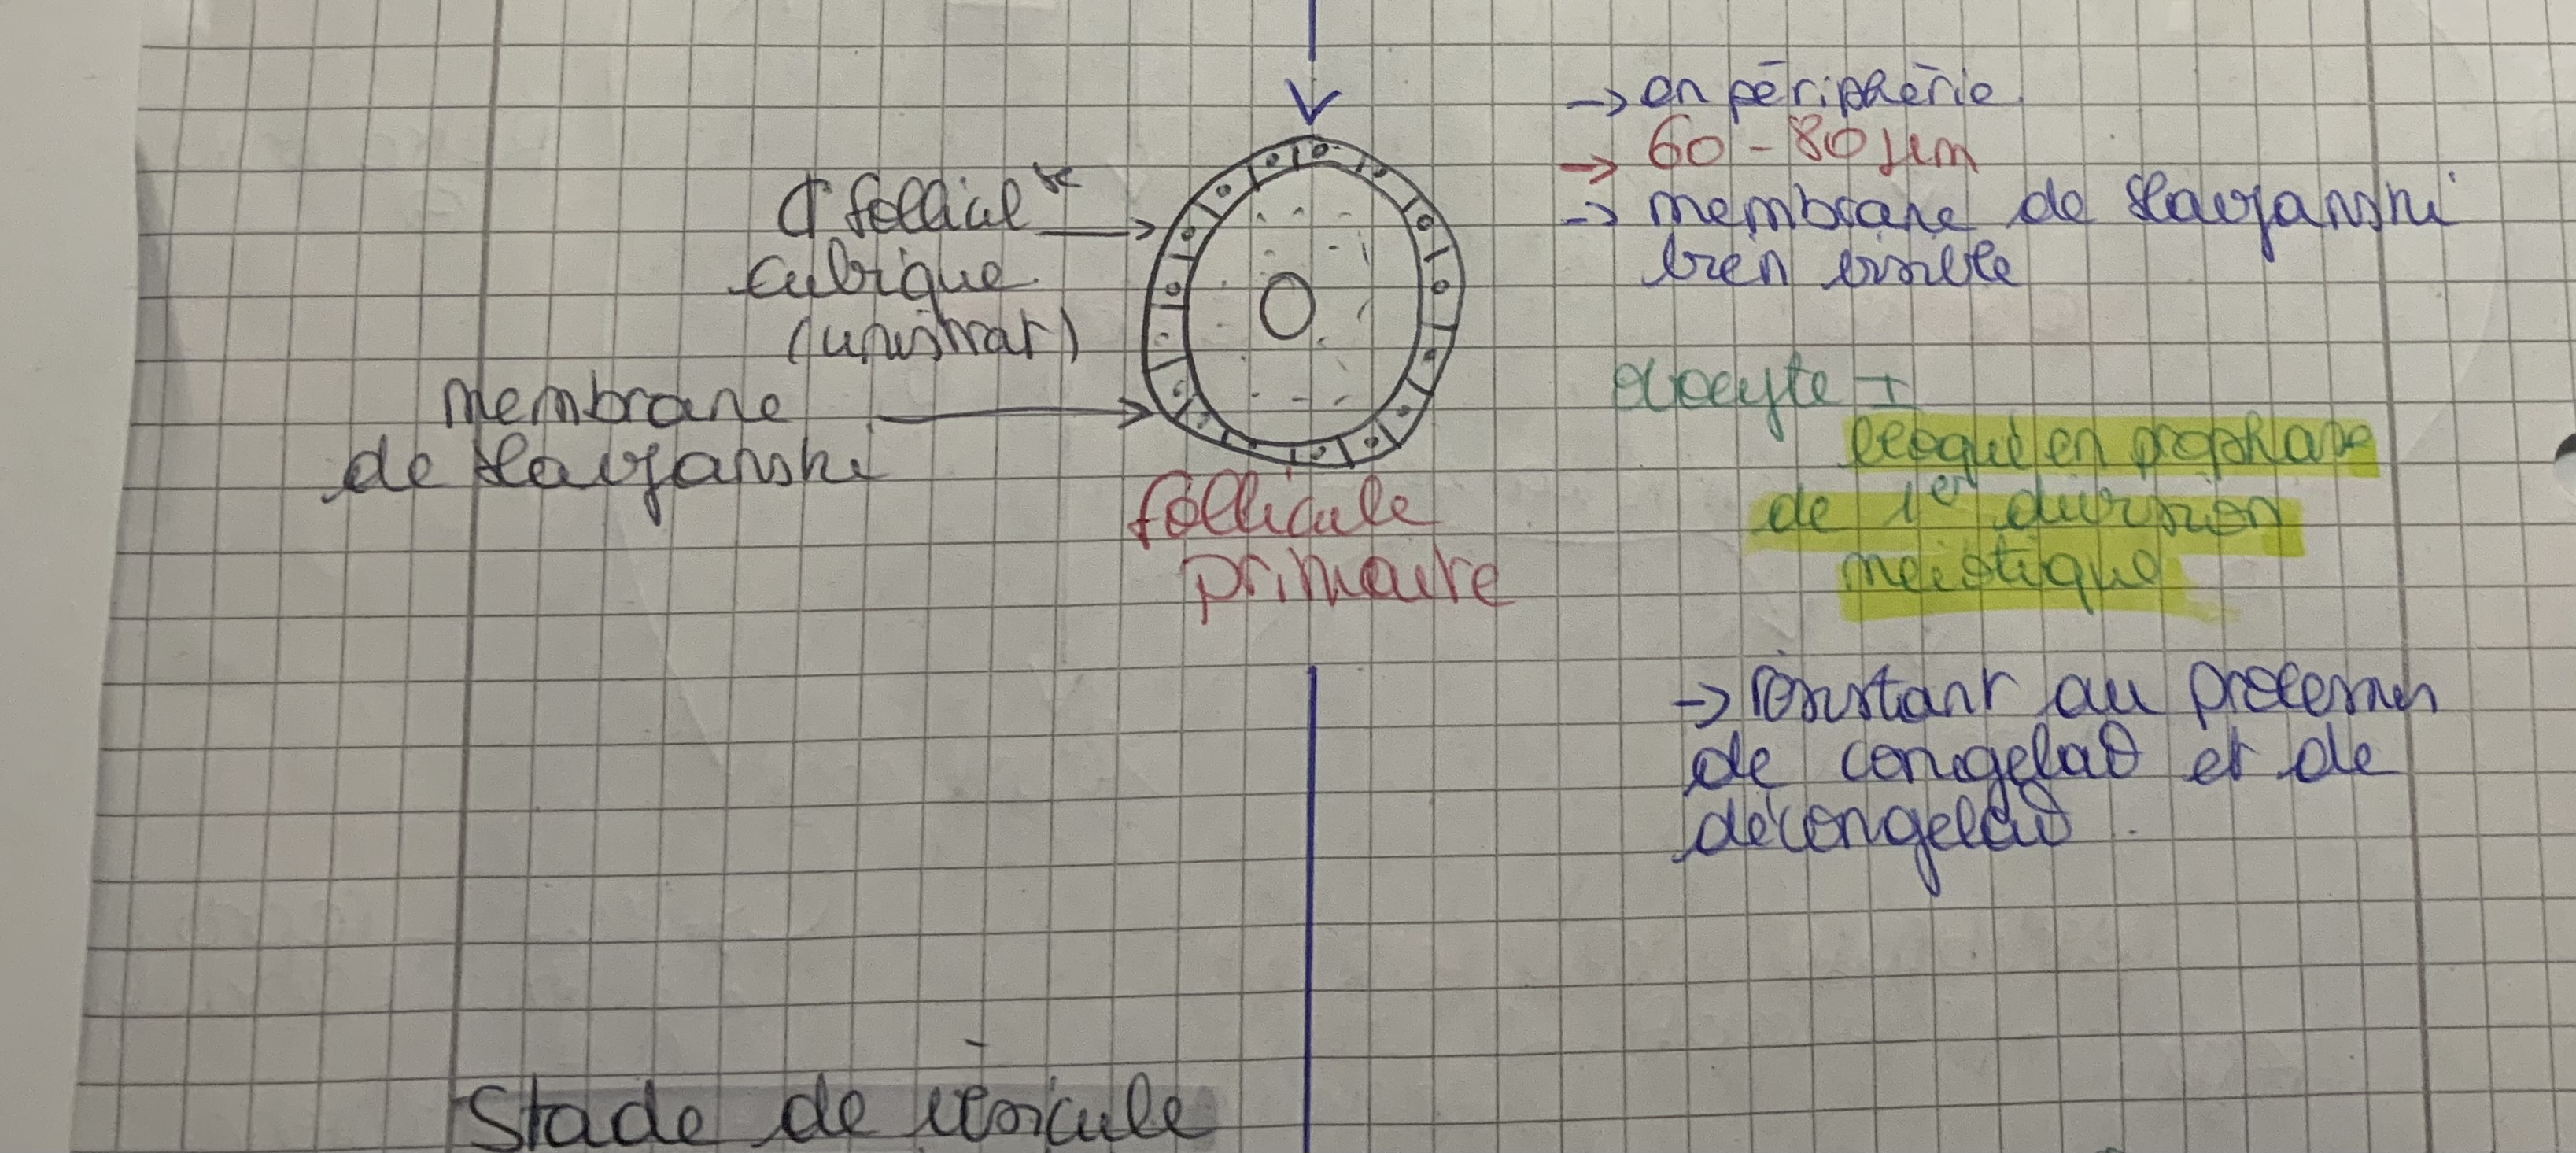 follicul^re
cubique
(unistrat)
membrane
de Slavjanski
follicule
primaire
→ en périphérie
→ 60 - 80 µm
→ membrane de Slavjanski
bien visible
ovocyte I
bloqué en prophase
de 1e division
méiotique
→ résistant au processus
de congelaθ et de
décongelaθ.
Stade de vésicule